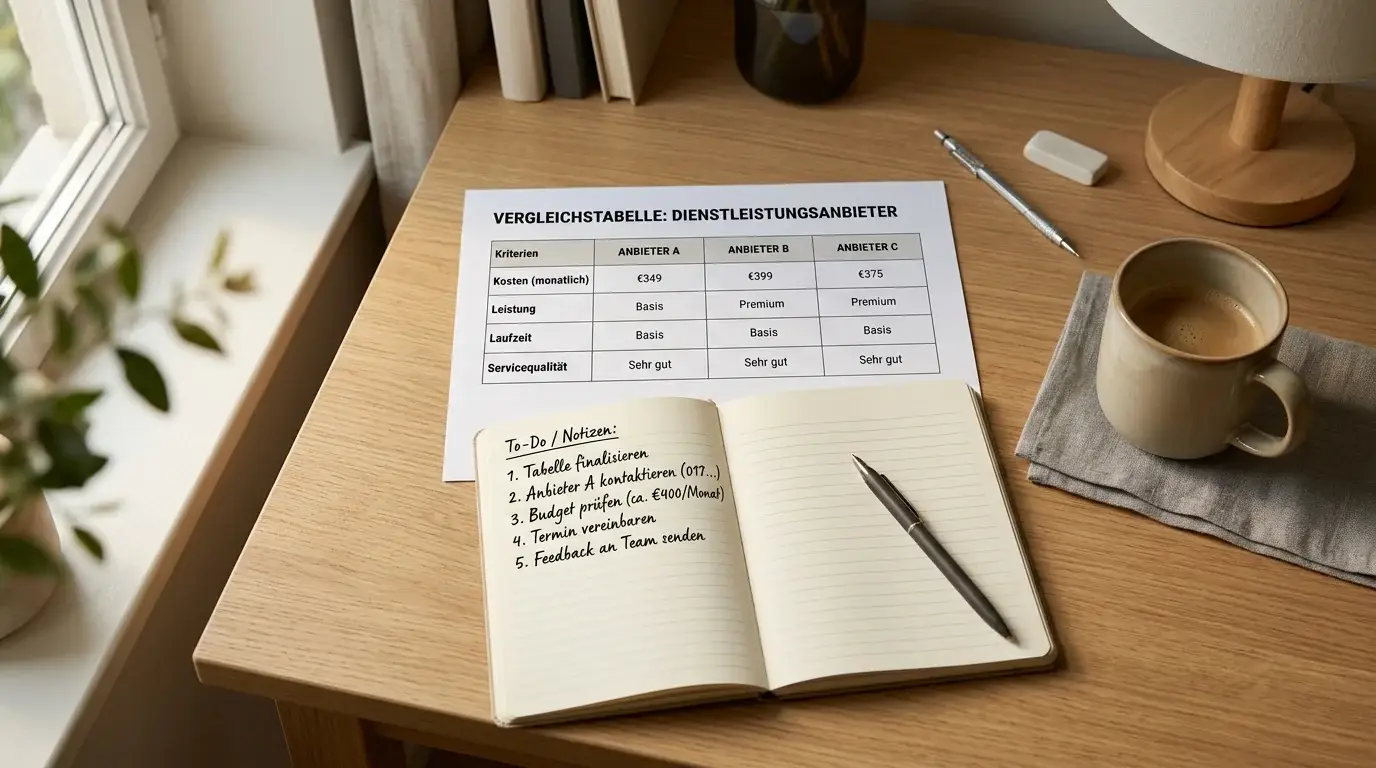 VERGLEICHSTABELLE: DIENSTLEISTUNGSANBIETER
Kriterien ANBIETER A ANBIETER B ANBIETER C
Kosten (monatlich) €349 €399 €375
Leistung Basis Premium Premium
Laufzeit Basis Basis Basis
Servicequalität Sehr gut Sehr gut Sehr gut
To-Do / Notizen:
1. Tabelle finalisieren
2. Anbieter A kontaktieren (017...)
3. Budget prüfen (ca. €400/Monat)
4. Termin vereinbaren
5. Feedback an Team senden